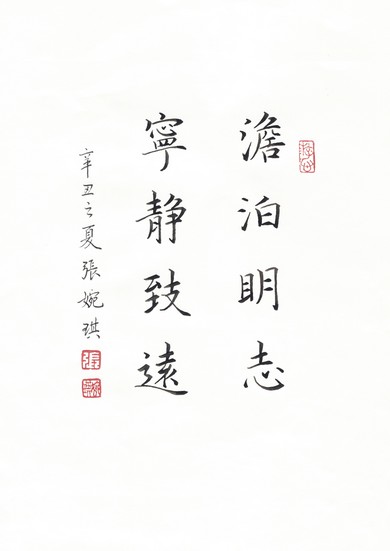 澹泊明志
寧静致遠
辛丑之夏張婉琪